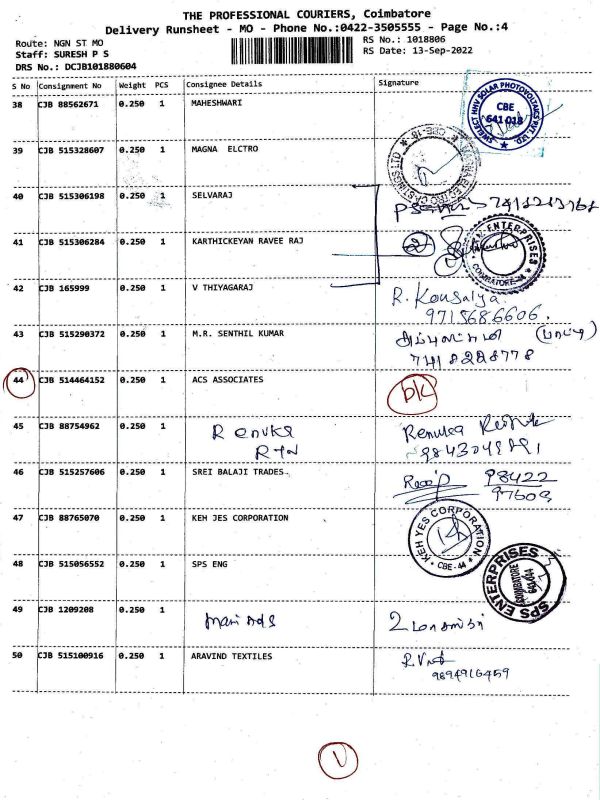 THE PROFESSIONAL COURIERS, Coimbatore
Delivery Runsheet - MO - Phone No.:0422-3505555 - Page No.:4
Route: NGN ST MO RS No.: 1018806
Staff: SURESH P S RS Date: 13-Sep-2022
DRS No.: DCJB101880604
S No Consignment No Weight PCS Consignee Details Signature
38 CJB 88562671 0.250 1 MAHESHWARI
SWELECT HHV SOLAR PHOTOVOLTAICS PVT. LTD. CBE 641 018
39 CJB 515328607 0.250 1 MAGNA ELCTRO
40 CJB 515306198 0.250 1 SELVARAJ
41 CJB 515306284 0.250 1 KARTHICKEYAN RAVEE RAJ
ENTERPRISES COIMBATORE-44
42 CJB 165999 0.250 1 V THIYAGARAJ R. Kousalya.
9715686606.
43 CJB 515290372 0.250 1 M.R. SENTHIL KUMAR (பாட்டி)
7418228778
44 CJB 514464152 0.250 1 ACS ASSOCIATES
45 CJB 88754962 0.250 1 Renuka Renuka
46 CJB 515257606 0.250 1 SREI BALAJI TRADES. 98422
97609
47 CJB 88765070 0.250 1 KEH JES CORPORATION
KEH YES CORPORATION CBE-44
48 CJB 515056552 0.250 1 SPS ENG
SPS ENTERPRISES COIMBATORE 641 044
49 CJB 1209208 0.250 1
50 CJB 515100916 0.250 1 ARAVIND TEXTILES
9894916459